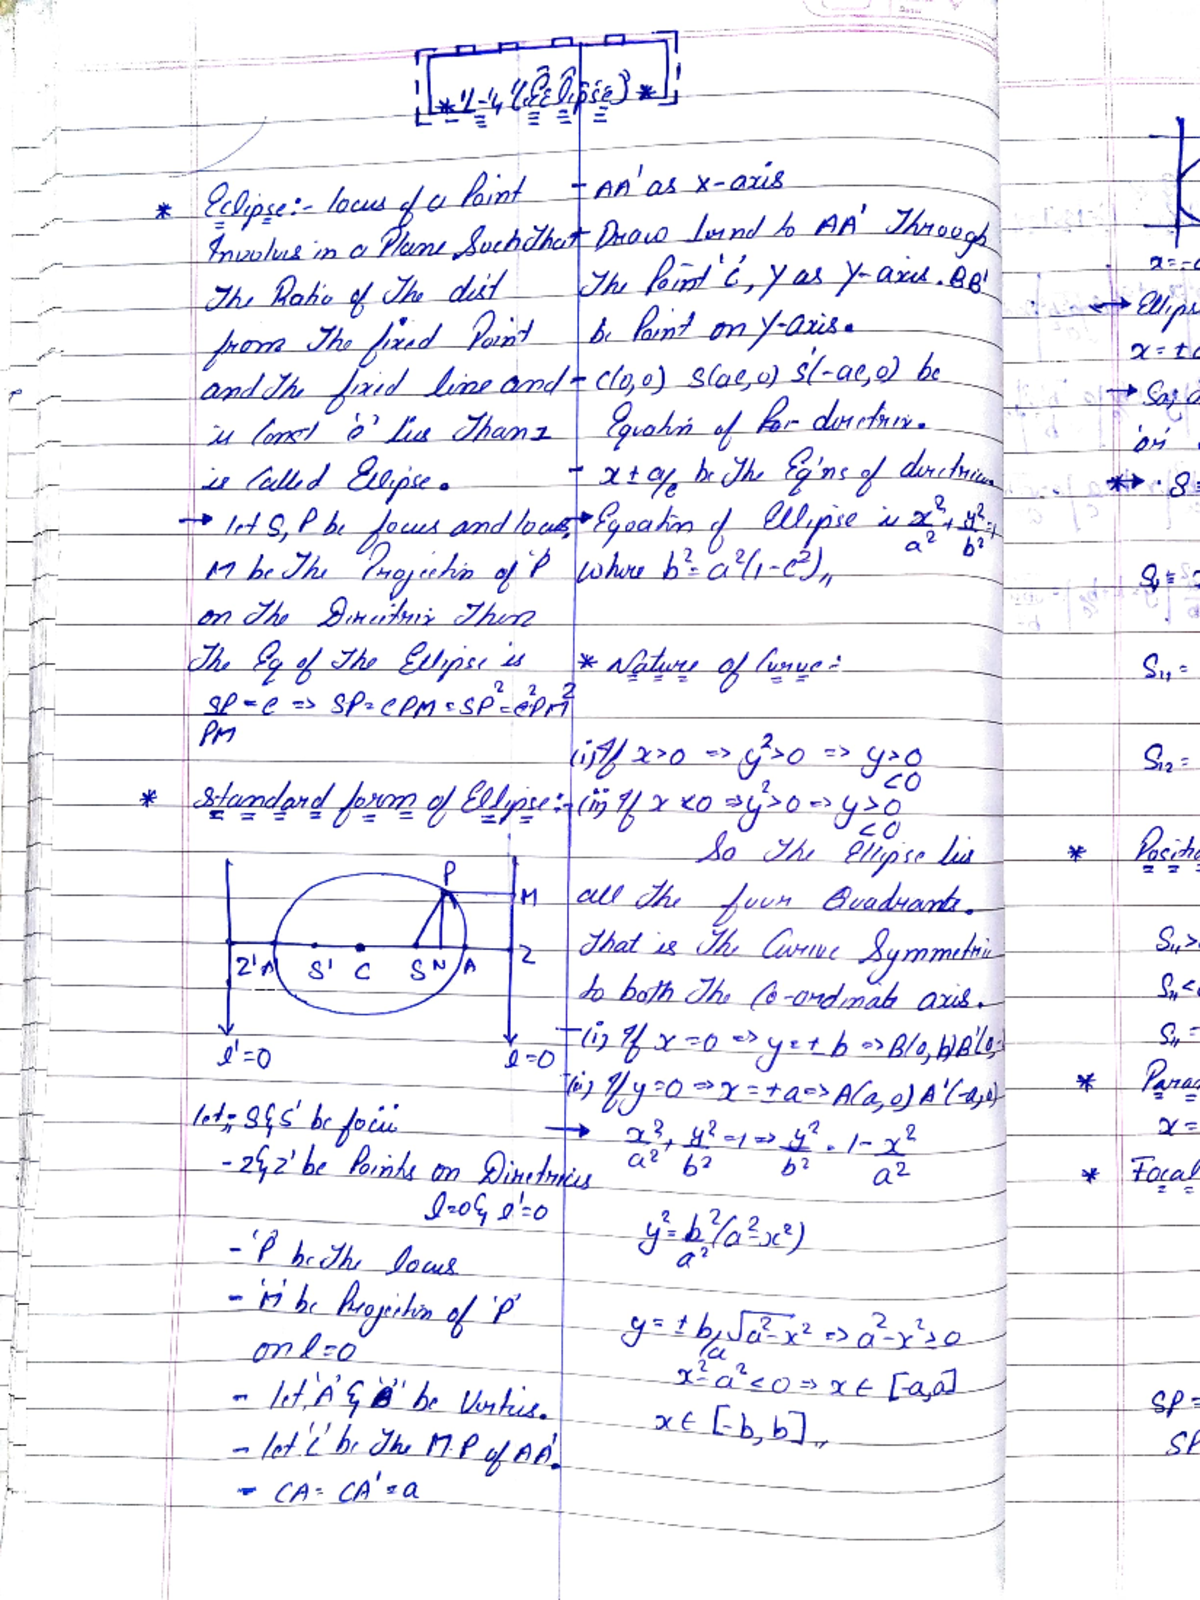 * L-4 (Ellipse) *
* Eclipse:- locus of a Point
Involves in a Plane Such That
The Ratio of The dist
from The fixed Point
and The fixed line and
is Const 'e' lies Than 1
is Called Ellipse.
→ let S, P be focus and locus,
M be The Projectin of 'P'
on The Directrix Then
The Eq of The Ellipse is
SP/PM = e => SP = ePM = SP² = e²PM²
* Standard form of Ellipse:-
P
M
Z' A' S' C S N A Z
l'=0 l=0
let,, S & S' be focii
- Z & Z' be Points on Diretrices
l=0 & l'=0
- 'P' be The locus
- 'M' be Projectin of 'P'
on l=0
- let 'A' & 'A'' be Vertices.
- let 'C' be The M.P of AA'.
- CA = CA' = a
- AA' as x-axis
- Draw to AA' Through
The Point 'C', Y as Y-axis. BB'
be Point on Y-axis.
- C(0,0) S(ae,0) S'(-ae,0) be
Equatin of directrix.
- x ± a/e be The Eq'ns of directrices
→ Eqoatin of Ellipse is x²/a² + y²/b² = 1
where b² = a²(1-e²),,
* Nature of Curve:-
(i) If x>0 => y²>0 => y>0
<0
(ii) If x<0 => y²>0 => y>0
<0
So The Ellipse lies
all The four Quadrants.
That is The Curve Symmetric
to both The Co-ordinate axis.
- (i) If x=0 => y=±b => B(0,b) B'(0,-
(ii) If y=0 => x=±a => A(a,0) A'(-a,0)
→ x²/a² + y²/b² = 1 => y²/b² = 1 - x²/a²
y² = b²/a² (a²-x²)
y = ± b/a √a²-x² => a²-x² ≥ 0
x²-a² ≤ 0 => x ∈ [-a,a]
x ∈ [-b,b],,
x=-a
→ Ellipse
x=±a
→
'or'
*→ S ≡
S₁ ≡
S₁₁ =
S₁₂ =
* Positio
S₁₁>
S₁₁<
S₁₁=
* Para
x=
* Focal
SP=
SP